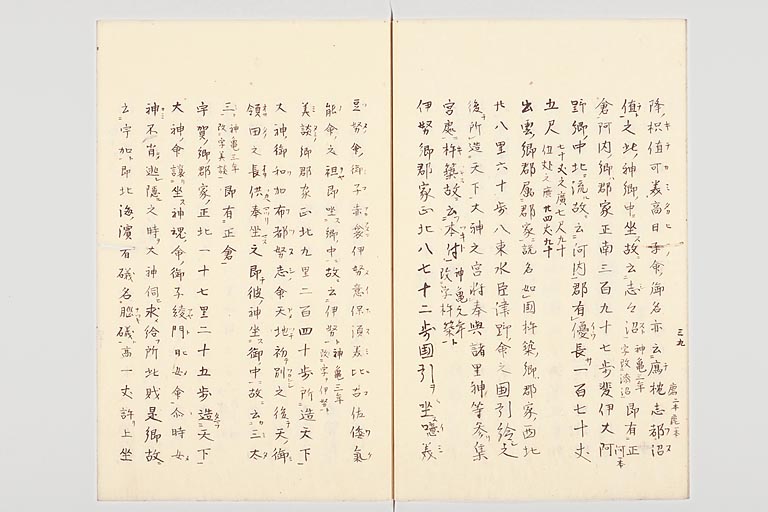 降、枳値可美高日子命、御名亦云薦枕志都沼
値、之此、神郷中、坐故云志々沼 神亀三年 字改添沼 即有正
倉、河内郷郡家正南三百九十七歩斐伊大河
野、郷中北流、故云河内郡有優長一百七十丈
五尺 七十丈之廣七尺九十 但処之廣四丈九十
出雲郷郡属郡家説名如国杵築、郷郡家西北
廿八里六十歩八束水臣津野命之国引給之
後、所造天下大神之宮将奉與諸里神等参集
宮處、杵築、故云本付、神亀三年 改字杵築
伊努郷郡家正北八七十二歩国引坐意美
豆努命、御子赤衾伊努意保須美比古佐倭氣
能命之祖、即坐郷中故云伊努 神亀三年 改字伊努
美談郷郡家正北九里二百四十歩所造天下
大神御和加布都努志命天地初別之後天、御
領田之長供奉坐之即彼神坐御中故云三太
三 神亀三年 改字美談 即有正倉
宇賀、郷郡家正北一十七里二十五歩造天下
大神命譲坐神魂命御子綾門比女命尒時女
神不肯逃隠之時、大神伺求給所此則是郷故
云宇加即北海濱有礒名脳礒高一丈許上坐
三九